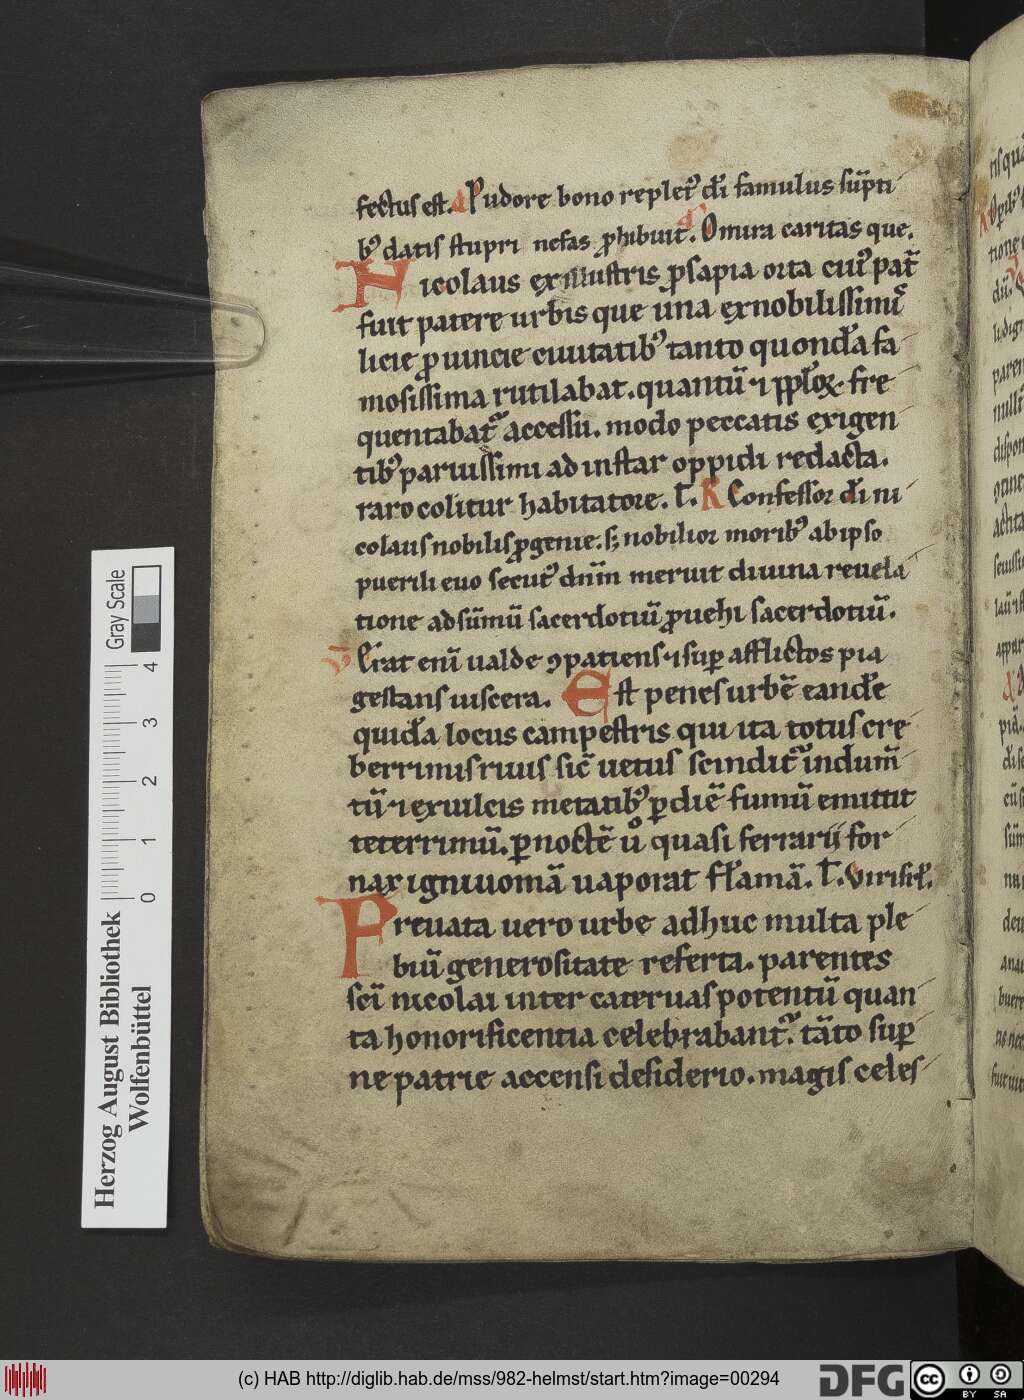 fectus est. A Pudore bono replet᷒ dī famulus sūpti
b᷒ datis stupri nefas ꝓhibuit. A O mira caritas que.
Nicolaus ex illustris ꝓsapia orta cui᷒ pat᷒
fuit patere urbis que una ex nobilissimis
licie ꝓuincie ciuitatib᷒ tanto quondā fa
mosissima rutilabat. quantū ⁊ fre
quentabat᷒ accessu. modo peccatis exigen
tib᷒ paruissimi ad instar oppidi redacta.
raro colitur habitatore. T. R Confessor dī ni
colaus nobilis ꝓgenie. sꝫ nobilior morib᷒ ab ipso
puerili euo secut᷒ dn̄m meruit diuina reuela
tione ad sūmū sacerdotiū ꝓuehi sacerdotiū.
V Erat eni᷒ ualde ꝯpatiens ⁊ suꝑ afflictos pia
gestans uiscera. Est penes urbē eandē
quidā locus campestris qui ita totus cre
berrimis riuis sic̄ uetus scindit᷒ indum̄
tū ⁊ exulcis metatib᷒ ꝑ diē fumū emittit
teterrimū. ꝑ noctē uͦ quasi ferrarij for
nax igniuomā uaporat flāmā. T.
Preuata uero urbe adhuc multa ple
biū generositate referta. parentes
sc̄i nicolai inter cateruas potentū quan
ta honorificentia celebrabant᷒. tāto suꝑ
ne patrie accensi desiderio. magis celes
Gray Scale
0 1 2 3 4
Herzog August Bibliothek
Wolfenbüttel
(c) HAB http://diglib.hab.de/mss/982-helmst/start.htm?image=00294
DFG
cc BY SA